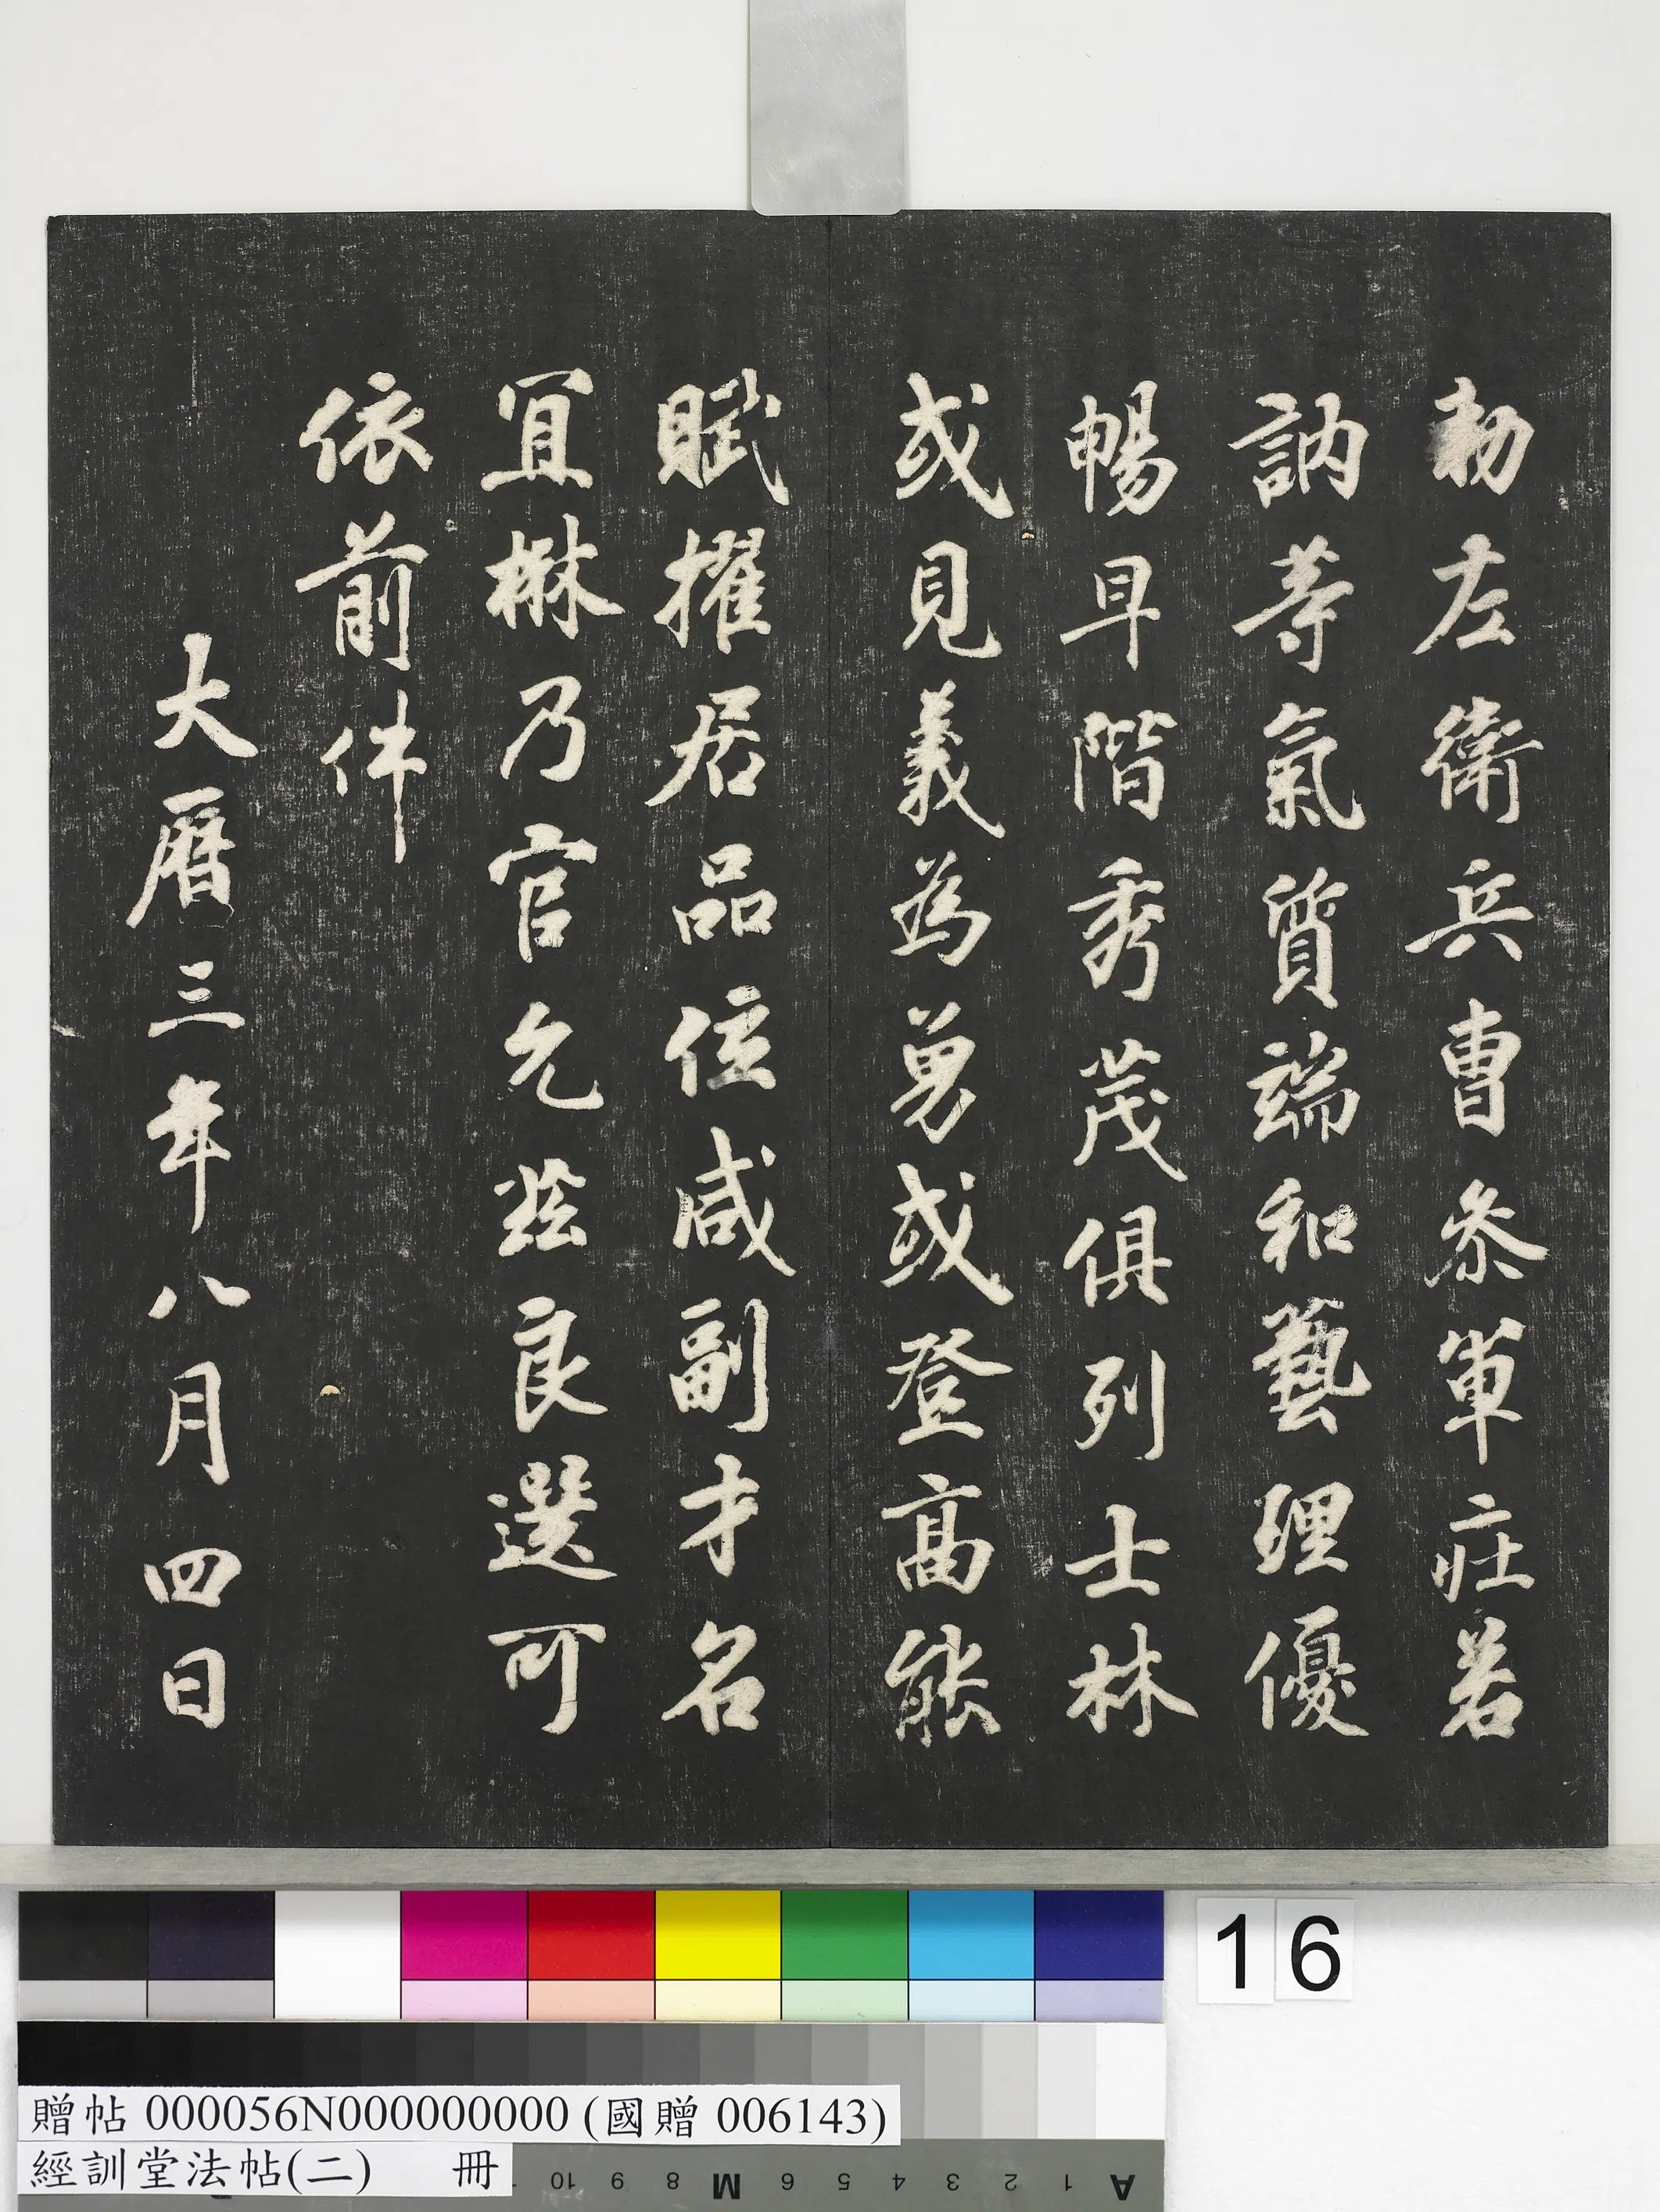 勅左衛兵曹参軍莊若
訥等氣質端和藝理優
暢早階秀茂俱列士林
或見義為勇或登高能
賦擢居品位咸副才名
宜楙乃官允茲良選可
依前件
大曆三年八月四日
16
贈帖 000056N000000000 (國贈 006143)
經訓堂法帖(二) 冊
10 9 8 M 6 5 4 3 2 1 A